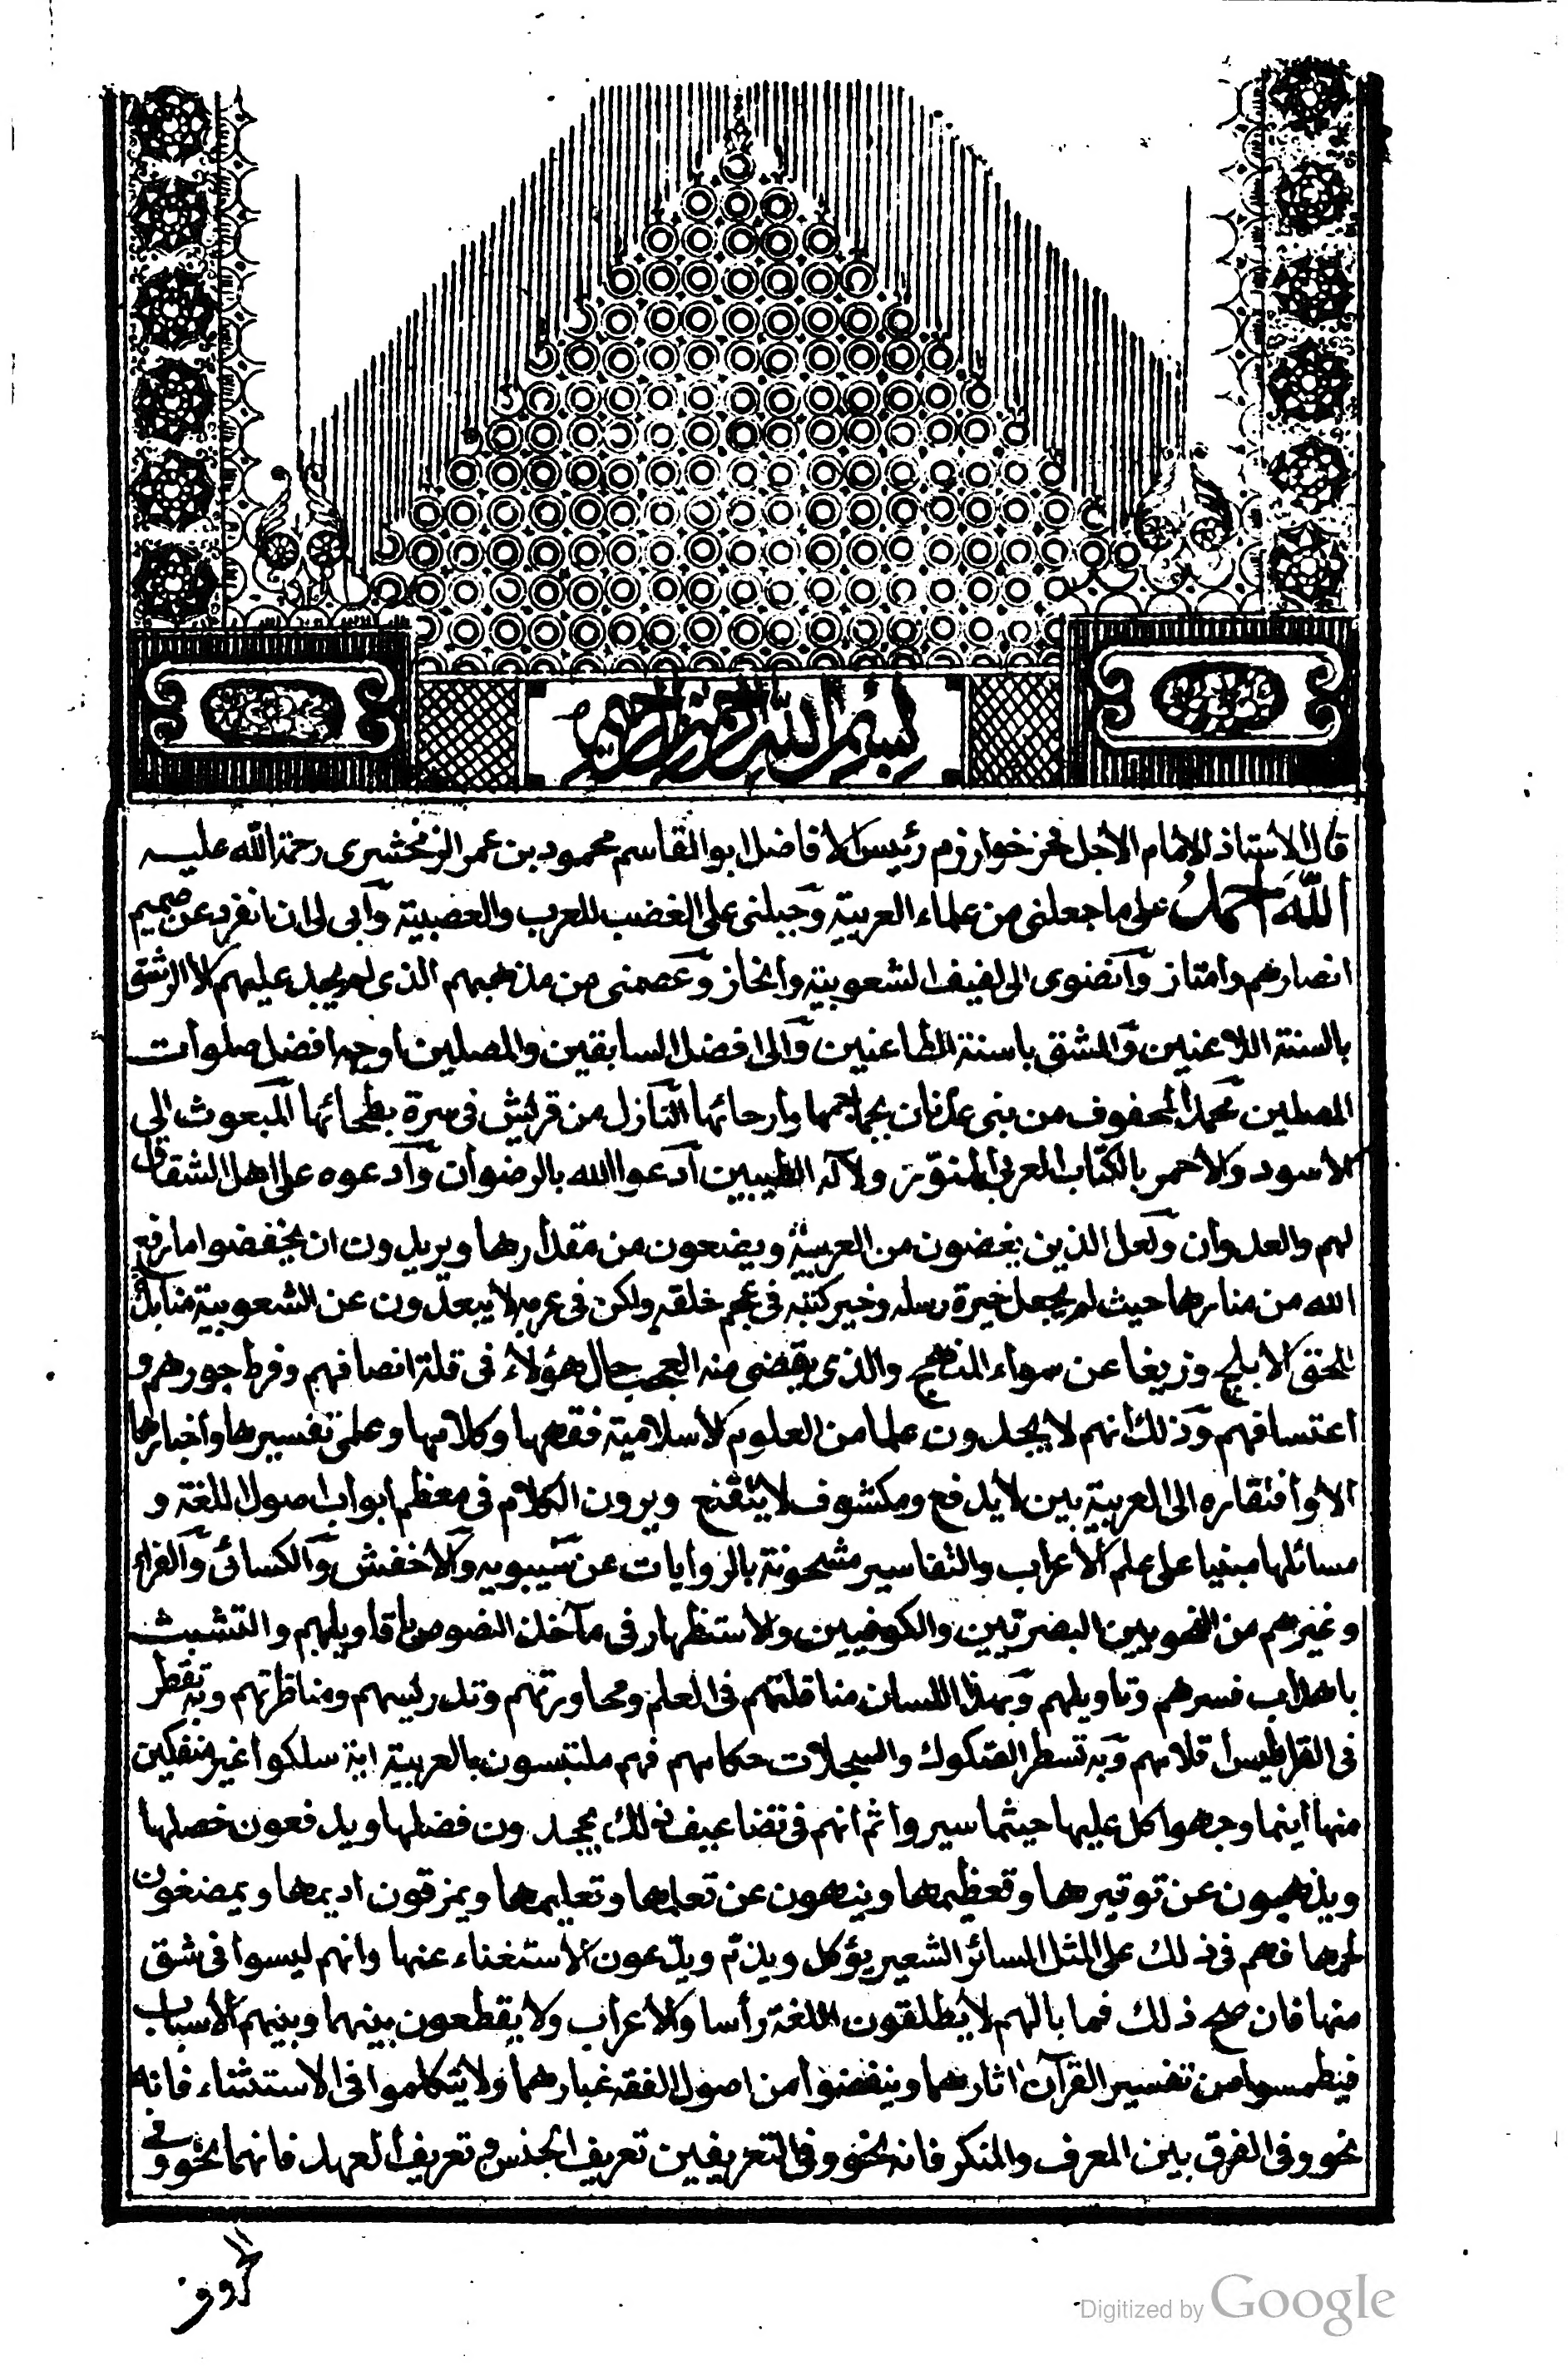 بسم الله الرحمن الرحيم
قال الأستاذ الإمام الأجل فخر خوارزم رئيس الأفاضل ابو القاسم محمود بن عمر الزمخشرى رحمة الله عليه
اللّهَ احمدُ على ما جعلنى من علماء العربية وجبلنى على الغضب للعرب والعصبية وأبى لى ان انفرد عن صميم
انصارهم وامتاز وانضوى الى لفيف الشعوبية وانحاز وعصمنى من مذهبهم الذى لم يجد عليهم الا الرشق
بالسنة اللاعنين والمشق باسنة الطاعنين والى افضل السابقين والمصلين اوجه افضل صلوات
المصلين محمد المحفوف من بنى عدنان بجماجمها وارحائها النازل من قريش فى سرة بطحائها المبعوث الى
الاسود والاحمر بالكتاب العربى المنور ولآله الطيبين ادعوا الله بالرضوان وادعوه على اهل الشقاق
لهم والعدوان ولعل الذين يغضون من العربية ويضعون من مقدارها ويريدون ان يخفضوا ما رفع
الله من منارها حيث لم يجعل خيرة رسله وخير كتبه فى عجم خلقه ولكن فى عربه لا يبعدون عن الشعوبية منابذة
للحق الابلج وزيغا عن سواء المنهج والذى يقضى منه العجب حال هؤلاء فى قلة انصافهم وفرط جورهم و
اعتسافهم وذلك انهم لا يجدون علما من العلوم الاسلامية فقهها وكلامها وعلمى تفسيرها واخبارها
الا وافتقاره الى العربية بين لا يدفع ومكشوف لا يتقنع ويرون الكلام فى معظم ابواب اصول اللغة و
مسائلها مبنيا على علم الاعراب والتفاسير مشحونة بالروايات عن سيبويه والاخفش والكسائى والفراء
وغيرهم من النحويين البصريين والكوفيين والاستظهار فى مآخذ النصوص باقاويلهم والتشبث
باهداب فسرهم وتاويلهم وبهذا اللسان مناقلتهم فى العلم ومحاورتهم وتدريسهم ومناظرتهم وبه تقطر
فى القراطيس اقلامهم وبه تسطر الصكوك والسجلات حكامهم فهم ملتبسون بالعربية اية سلكوا غير منفكين
منها اينما وجهوا كل عليها حيثما سيروا ثم انهم فى تضاعيف ذلك يجحدون فضلها ويدفعون خصلها
ويذهبون عن توقيرها وتعظيمها وينهون عن تعلمها وتعليمها ويمزقون اديمها ويمضغون
لحمها فهم فى ذلك على المثل السائر الشعير يؤكل ويذم ويدّعون الاستغناء عنها وانهم ليسوا فى شق
منها فان صح ذلك فما بالهم لا يطلقون اللغة رأسا والاعراب ولا يقطعون بينهما وبينهم الاسباب
فيطمسوا من تفسير القرآن اثارهما وينفضوا من اصول الفقه غبارهما ولا يتكلموا فى الاستثناء فانه
نحو وفى الفرق بين المعرف والمنكر فانه نحو وفى التعريفين تعريف الجنس وتعريف العهد فانهما نحو وفى
Digitized by Google